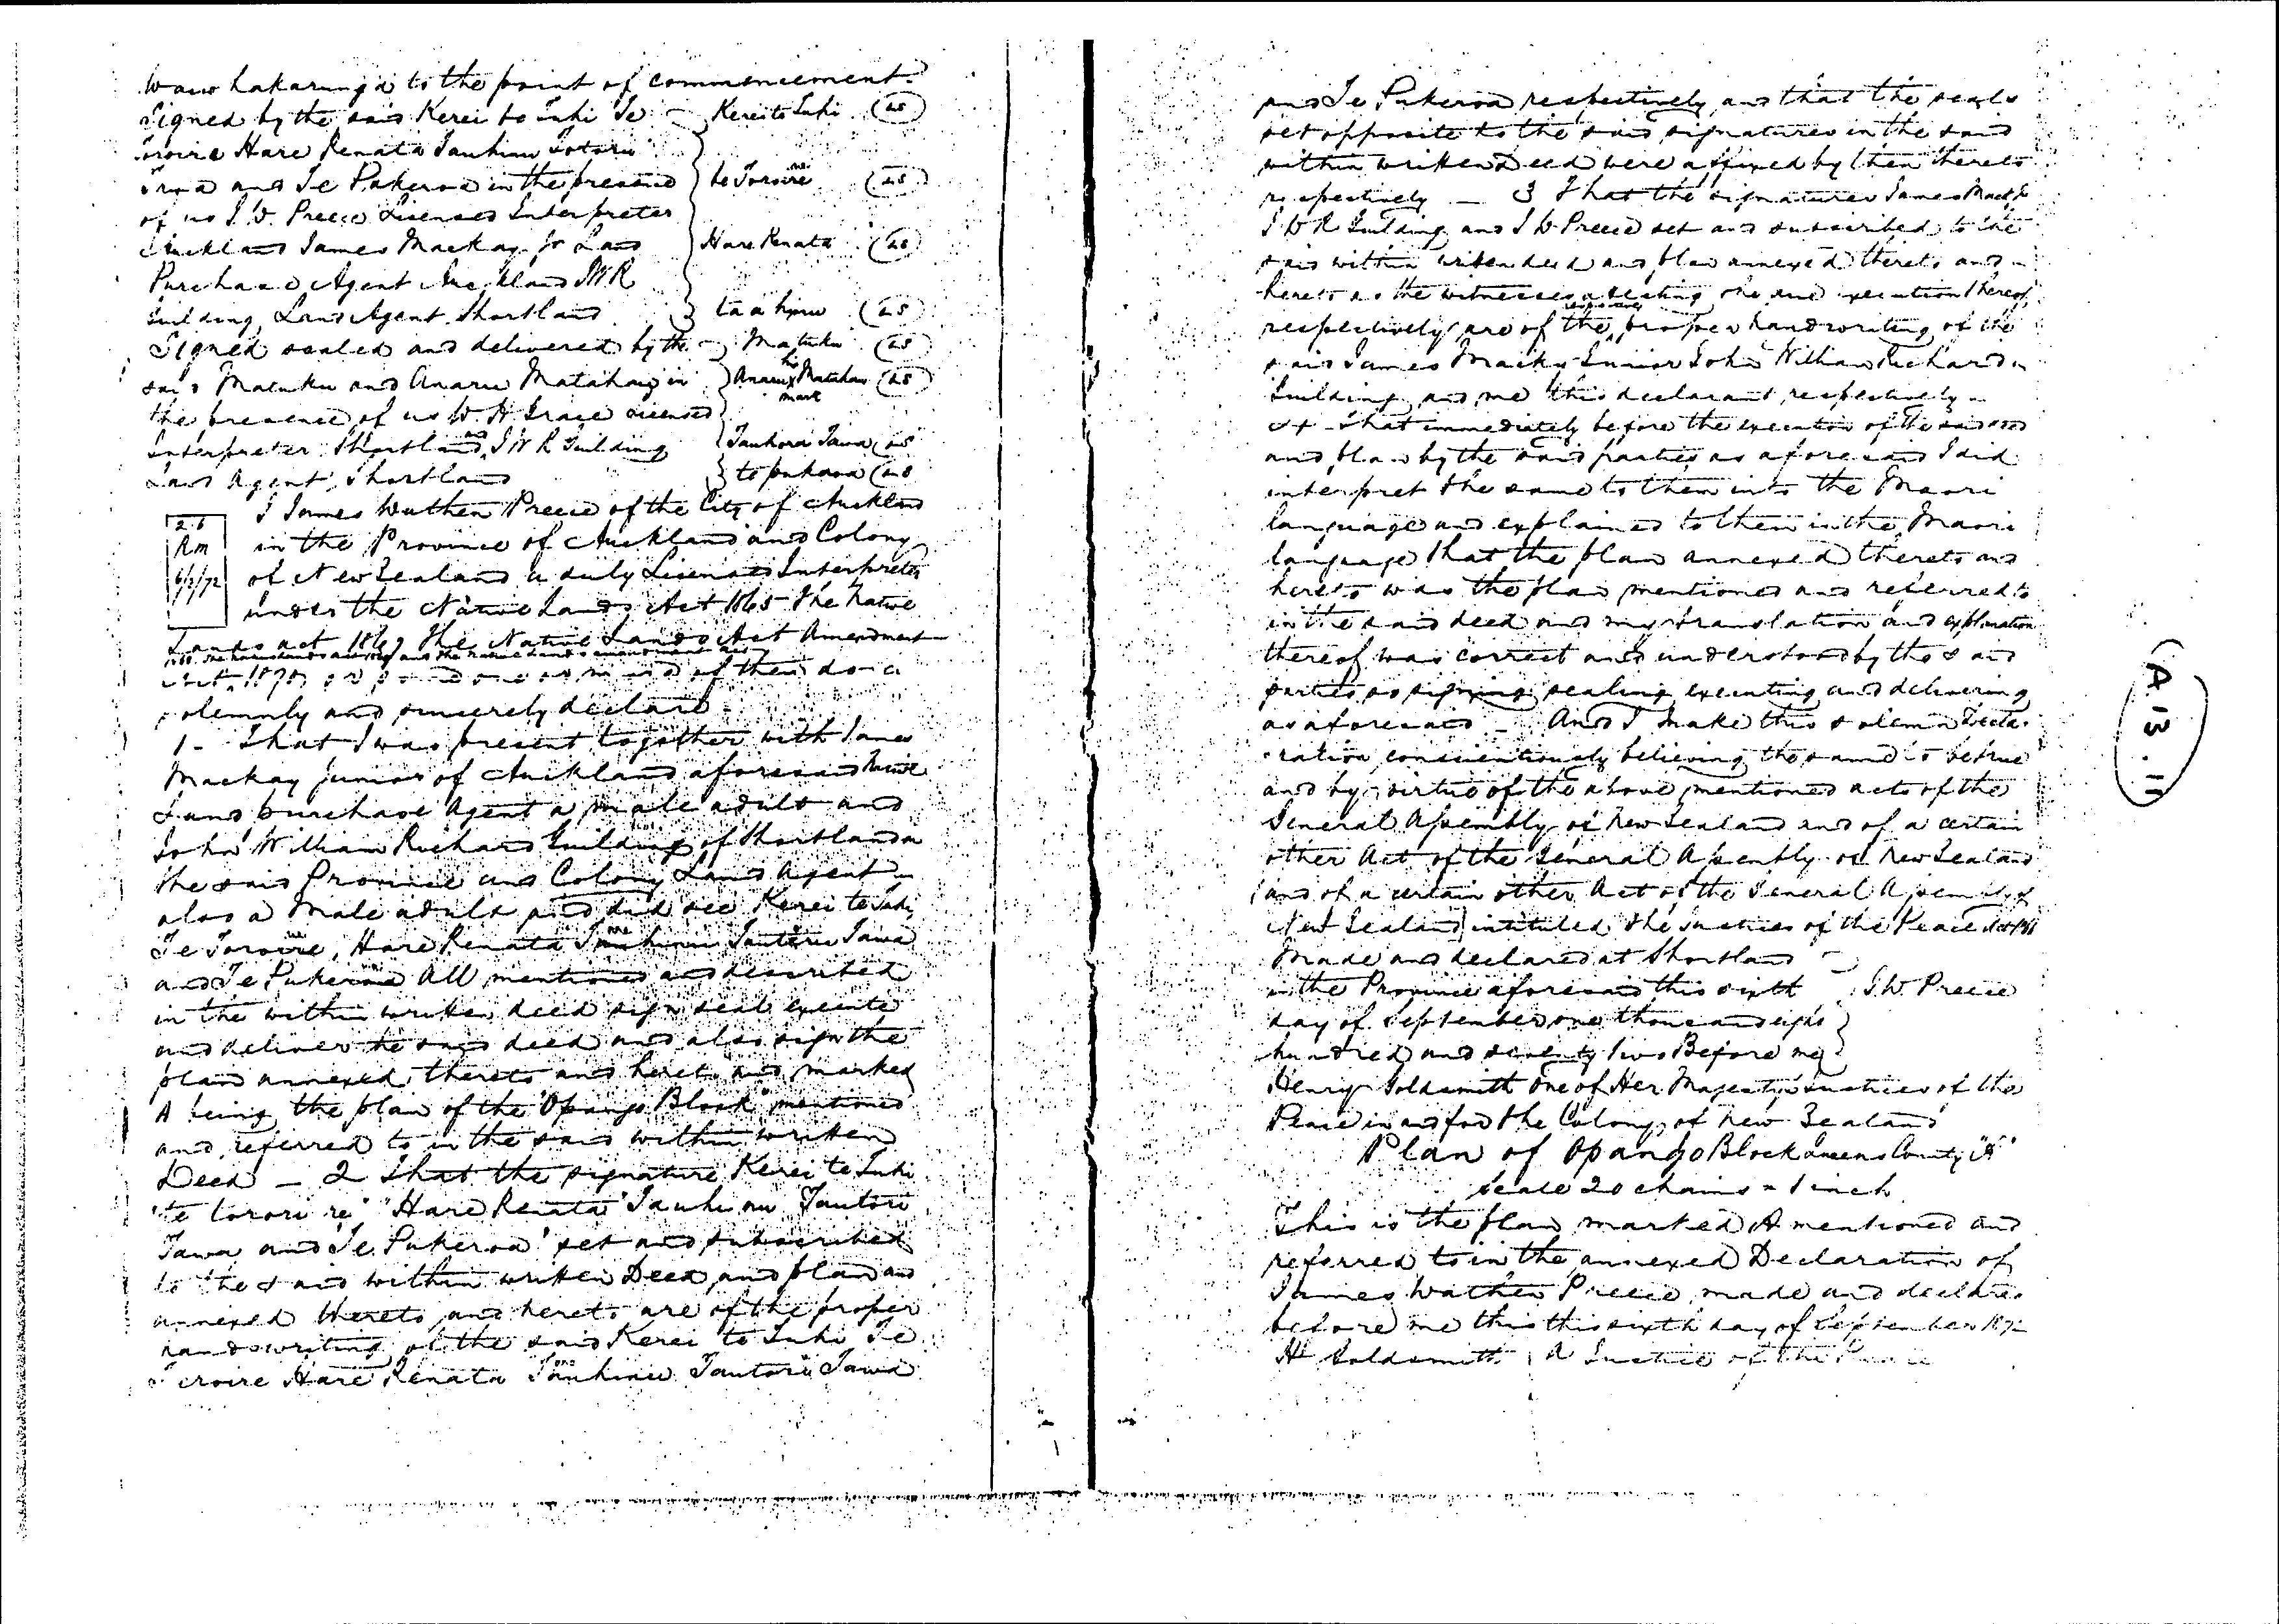 Wauwhakarunga to the point of commencement.
Signed by the said Kerei te Tuhi Te Kerei te Tuhi LS
Toroire Hare Renata Tauhinu Totori
Tawa and Te Pukeroa in the presence te Toroire LS
of us J. W. Preece Licensed Interpreter
Auckland James Mackay Jr Land Hare Renata LS
Purchase Agent Auckland JWR
Guilding, Land Agent Shortland LS
Signed sealed and delivered by the Matuku LS
said Matuku and Anaru Matahau in Anaru x Matahau LS
his mark
the presence of us W. H. Grace Licensed
Interpreter Shortland and J W R Guilding Tawa LS
Land Agent, Shortland te pukaroa LS
I James Wathen Preece of the City of Auckland
26
RM
6/9/72
in the Province of Auckland and Colony
of New Zealand a duly Licensed Interpreter
under the Native Lands Act 1865 The Native
Lands Act 1867 The Native Lands Act Amendment
of them do
solemnly and sincerely declare
1 - That I was present together with James
Mackay junior of Auckland aforesaid Native
Land purchase Agent a male adult and
John William Richard Guilding of Shortland in
the said Province and Colony Land Agent
also a male adult and did see Kerei te Tuhi
Te Toroire, Hare Renata Tauhinu Tautoru Tawa
and Te Pukeroa All mentioned and described
in the within written deed sign seal execute
and deliver the said deed and also sign the
plan annexed thereto and hereto and marked
A being the plan of the "Opango Block" mentioned
and referred to in the said within written
Deed - 2 That the signature Kerei te Tuhi
"te toroire" "Hare Renata" Tauhinu Tautori
Tawa and Te Pukeroa" set and subscribed
to the said within written Deed, and plan and
annexed thereto and hereto are of the proper
handwriting of the said Kerei te Tuhi Te
Toroire Hare Renata Tauhinu Tautori Tawa
and Te Pukeroa respectively and that the seals
set opposite to the said signatures in the said
within written Deed were affixed by them thereto
respectively - 3 That the signatures James Mackay Jr
J W R Guilding and J W Preece set and subscribed to the
said within written deed and plan annexed thereto and
hereto as the witnesses attesting the due execution thereof
respectively are of the respective proper handwriting of the
said James Mackay Junior John William Richard
Guilding and me this declarant respectively
4 - That immediately before the execution of the said deed
and plan by the said parties as aforesaid I did
interpret the same to them into the Maori
language and explained to them in the Maori
language that the plan annexed thereto and
hereto was the plan mentioned and referred to
in the said deed and my translation and explanation
thereof was correct and understood by the said
parties so signing sealing executing and delivering
as aforesaid - And I make this solemn Decla-
-ration conscientiously believing the same to be true
and by virtue of the above mentioned acts of the
General Assembly of New Zealand and of a certain
other Act of the General Assembly of New Zealand
(and of a certain other Act of the General Assembly of
New Zealand) intituled The Justices of the Peace Act 1866
Made and declared at Shortland
in the Province aforesaid this sixth J. W. Preece
day of September one thousand eight
hundred and seventy two Before me
Henry Goldsmith One of Her Majesty's Justices of the
Peace in and for the Colony of New Zealand
Plan of Opango Block Queens County "A"
Scale 20 chains = 1 inch
This is the plan marked A mentioned and
referred to in the annexed Declaration of
James Wathen Preece made and declared
before me this this sixth day of September 1872
H Goldsmith A Justice of the Peace
A 13.11